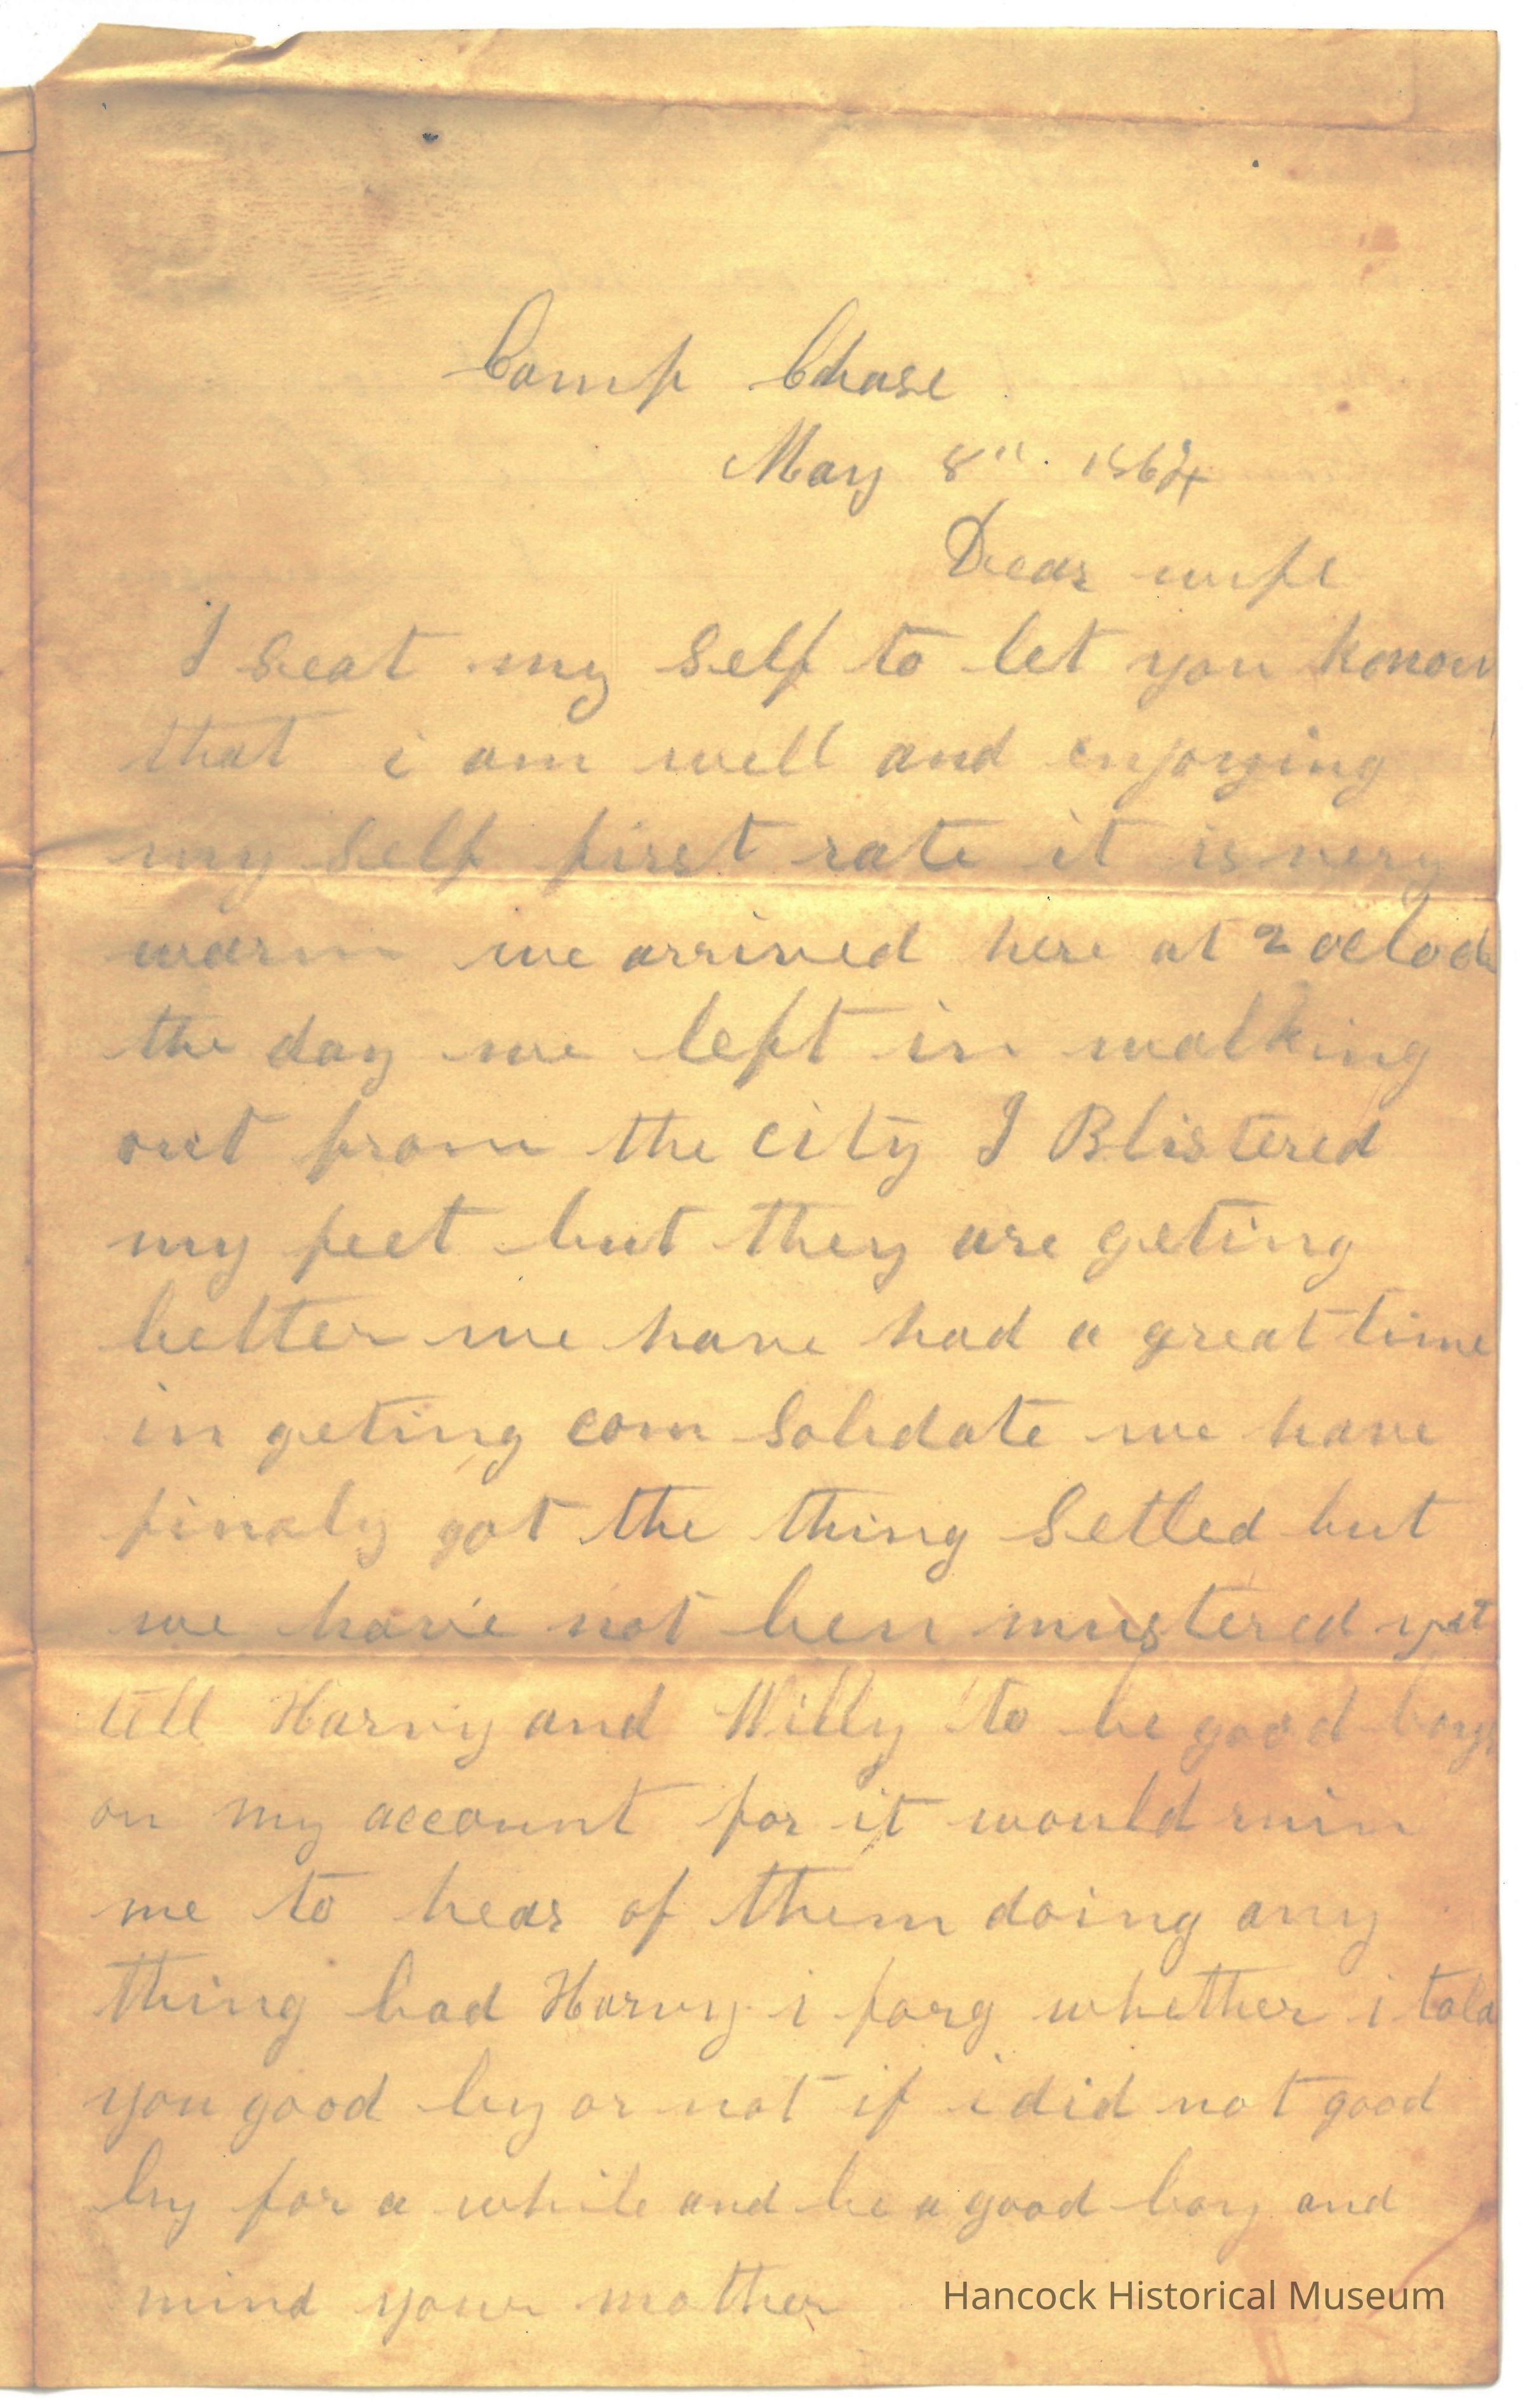 Camp Chase
May 8" 1864
Dear wife
I seat my self to let you konow
that i am well and enjoying
my self first rate it is very
warm we arrived here at 2 oclock
the day we left in walking
out from the city I Blistered
my feet but they are geting
better we have had a great time
in geting con solidate we have
finaly got the thing setled but
we have not ben mustered yet
tell Harvy and Willy to be good boys
on my account for it would ruin
me to hear of them doing any
thing bad Harvy i forg whether i told
you good by or not if i did not good
by for a while and be a good boy and
mind your mother
Hancock Historical Museum